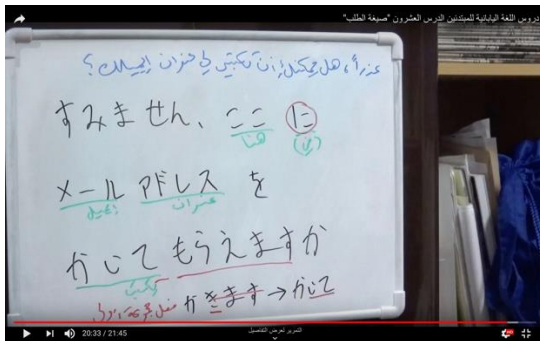 دروس اللغة اليابانية للمبتدئين الدرس العشرون "صيغة الطلب"
عذراً، هل يمكنك أن تكتبي لي عنوان إيميلك؟
すみません、ここに
هنا (في)
メールアドレスを
إيميل عنوان
かいてもらえますか
تكتب
かきます→かいて
20:33 / 21:45
التمرير لعرض التفاصيل